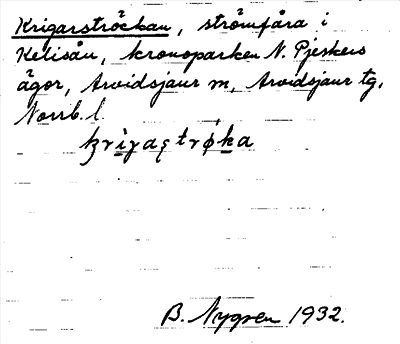 Krigarströckan, strömfåra i
Kelisån, kronoparken N. Pjeskers
ägor, Arvidsjaur sn, Arvidsjaur tg,
Norrb. l.
kriga$trøka
B. Nygren 1932.